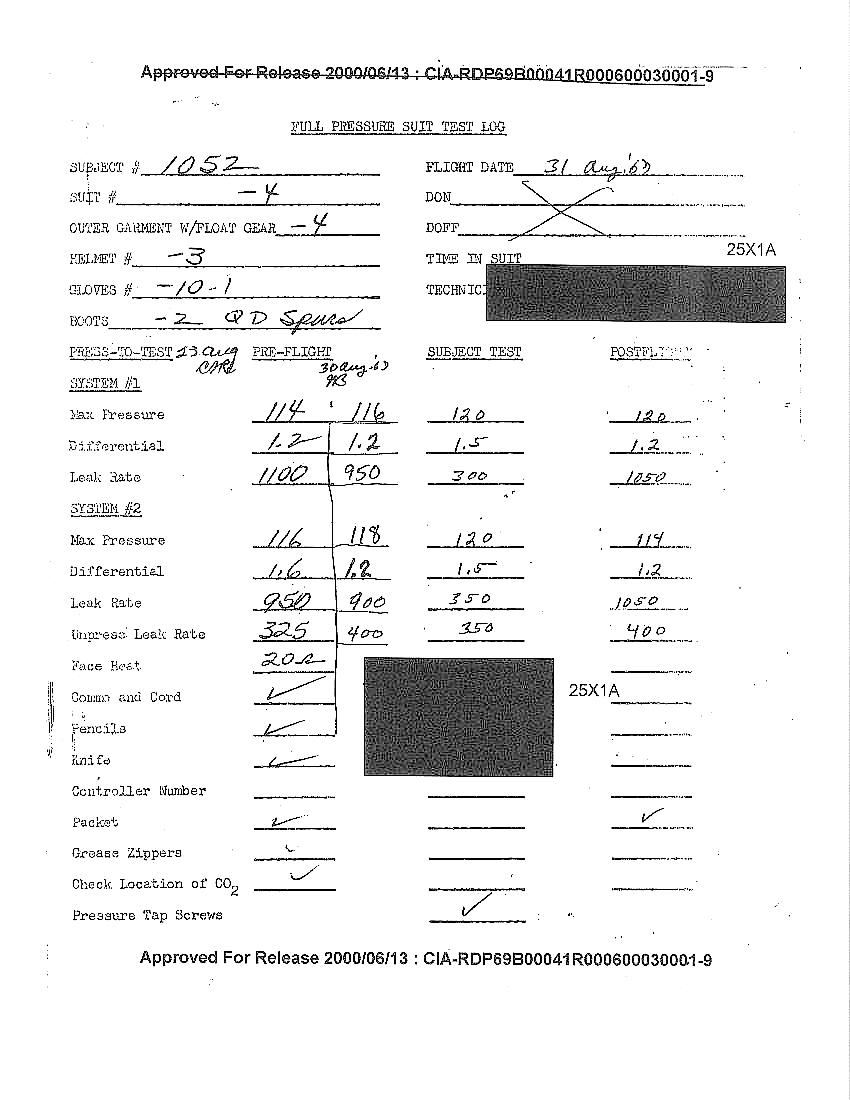 Approved For Release 2000/06/13 : CIA-RDP69B00041R000600030001-9
FULL PRESSURE SUIT TEST LOG
SUBJECT # 1052 FLIGHT DATE 31 Aug '63
SUIT # -4 DON
OUTER GARMENT W/FLOAT GEAR -4 DOFF
25X1A
HELMET # -3 TIME IN SUIT
GLOVES # -10-1 TECHNIC
BOOTS -2 QD Spurs
PRESS-TO-TEST 23 Aug PRE-FLIGHT 30 Aug '63 SUBJECT TEST POSTFLIGHT
SYSTEM #1
Max Pressure 114 116 120 120
Differential 1.2 1.2 1.5 1.2
Leak Rate 1100 950 300 1050
SYSTEM #2
Max Pressure 116 118 120 114
Differential 1.6 1.2 1.5 1.2
Leak Rate 950 900 350 1050
Unpress Leak Rate 325 400 350 400
Face Heat 20Ω
Commo and Cord ✓ 25X1A
Pencils ✓
Knife ✓
Controller Number
Packet ✓ ✓
Grease Zippers ✓
Check Location of CO2 ✓
Pressure Tap Screws ✓
Approved For Release 2000/06/13 : CIA-RDP69B00041R000600030001-9